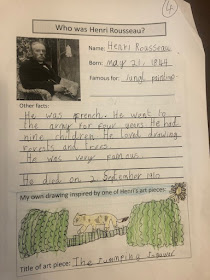 4
Who was Henri Rousseau?
Name: Henri Rousseau
Born: May 21, 1844
Famous for: Jungle paintings
Other facts:
He was french. He went to
the army for four years. He had
nine children. He loved drawing
forests and trees.
He was very famous.
He died on 2 September 1910
My own drawing inspired by one of Henri's art pieces:
Title of art piece: The Jumping Jaguar